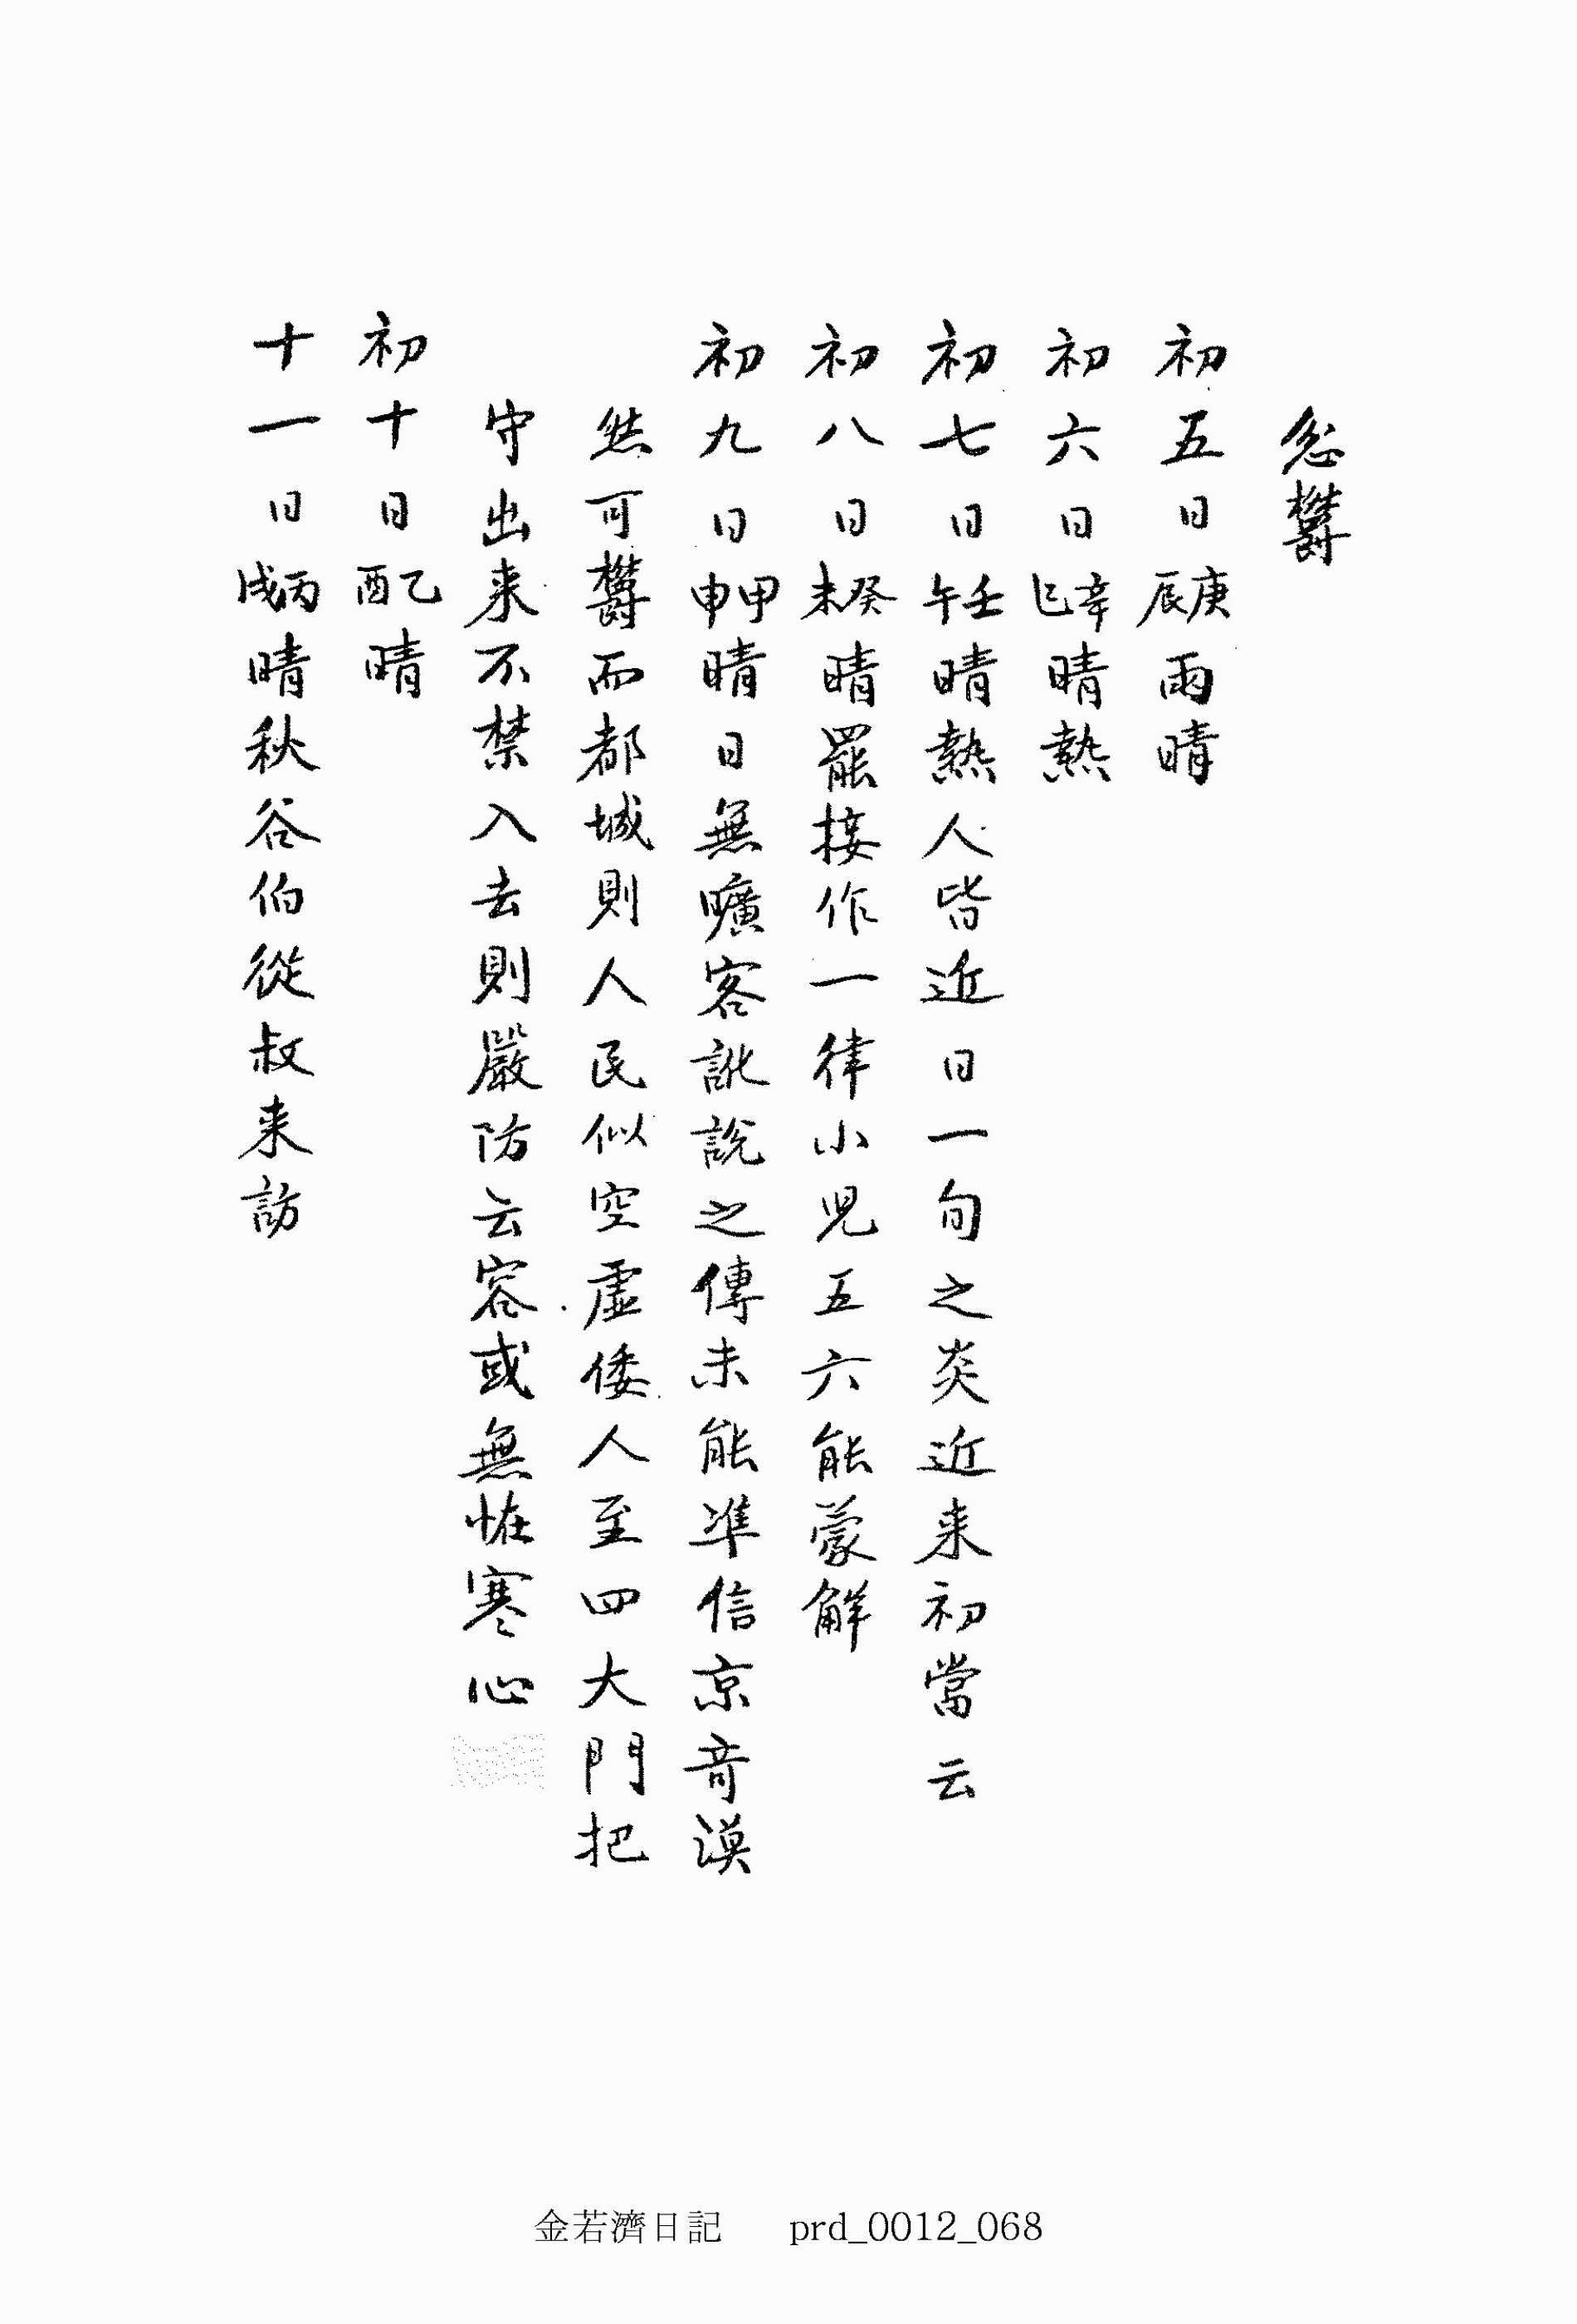 忿欝
初五日庚辰雨晴
初六日辛巳晴熱
初七日壬午晴熱人皆近日一旬之炎近来初當云
初八日癸未晴罷接作一律小児五六能蒙解
初九日甲申晴日無曠客訛說之傳未能準信京音漠
然可欝而都城則人民似空虛倭人至四大門把
守出来不禁入去則嚴防云容或無恠寒心
初十日乙酉晴
十一日丙戌晴秋谷伯從叔来訪
金若濟日記 prd_0012_068